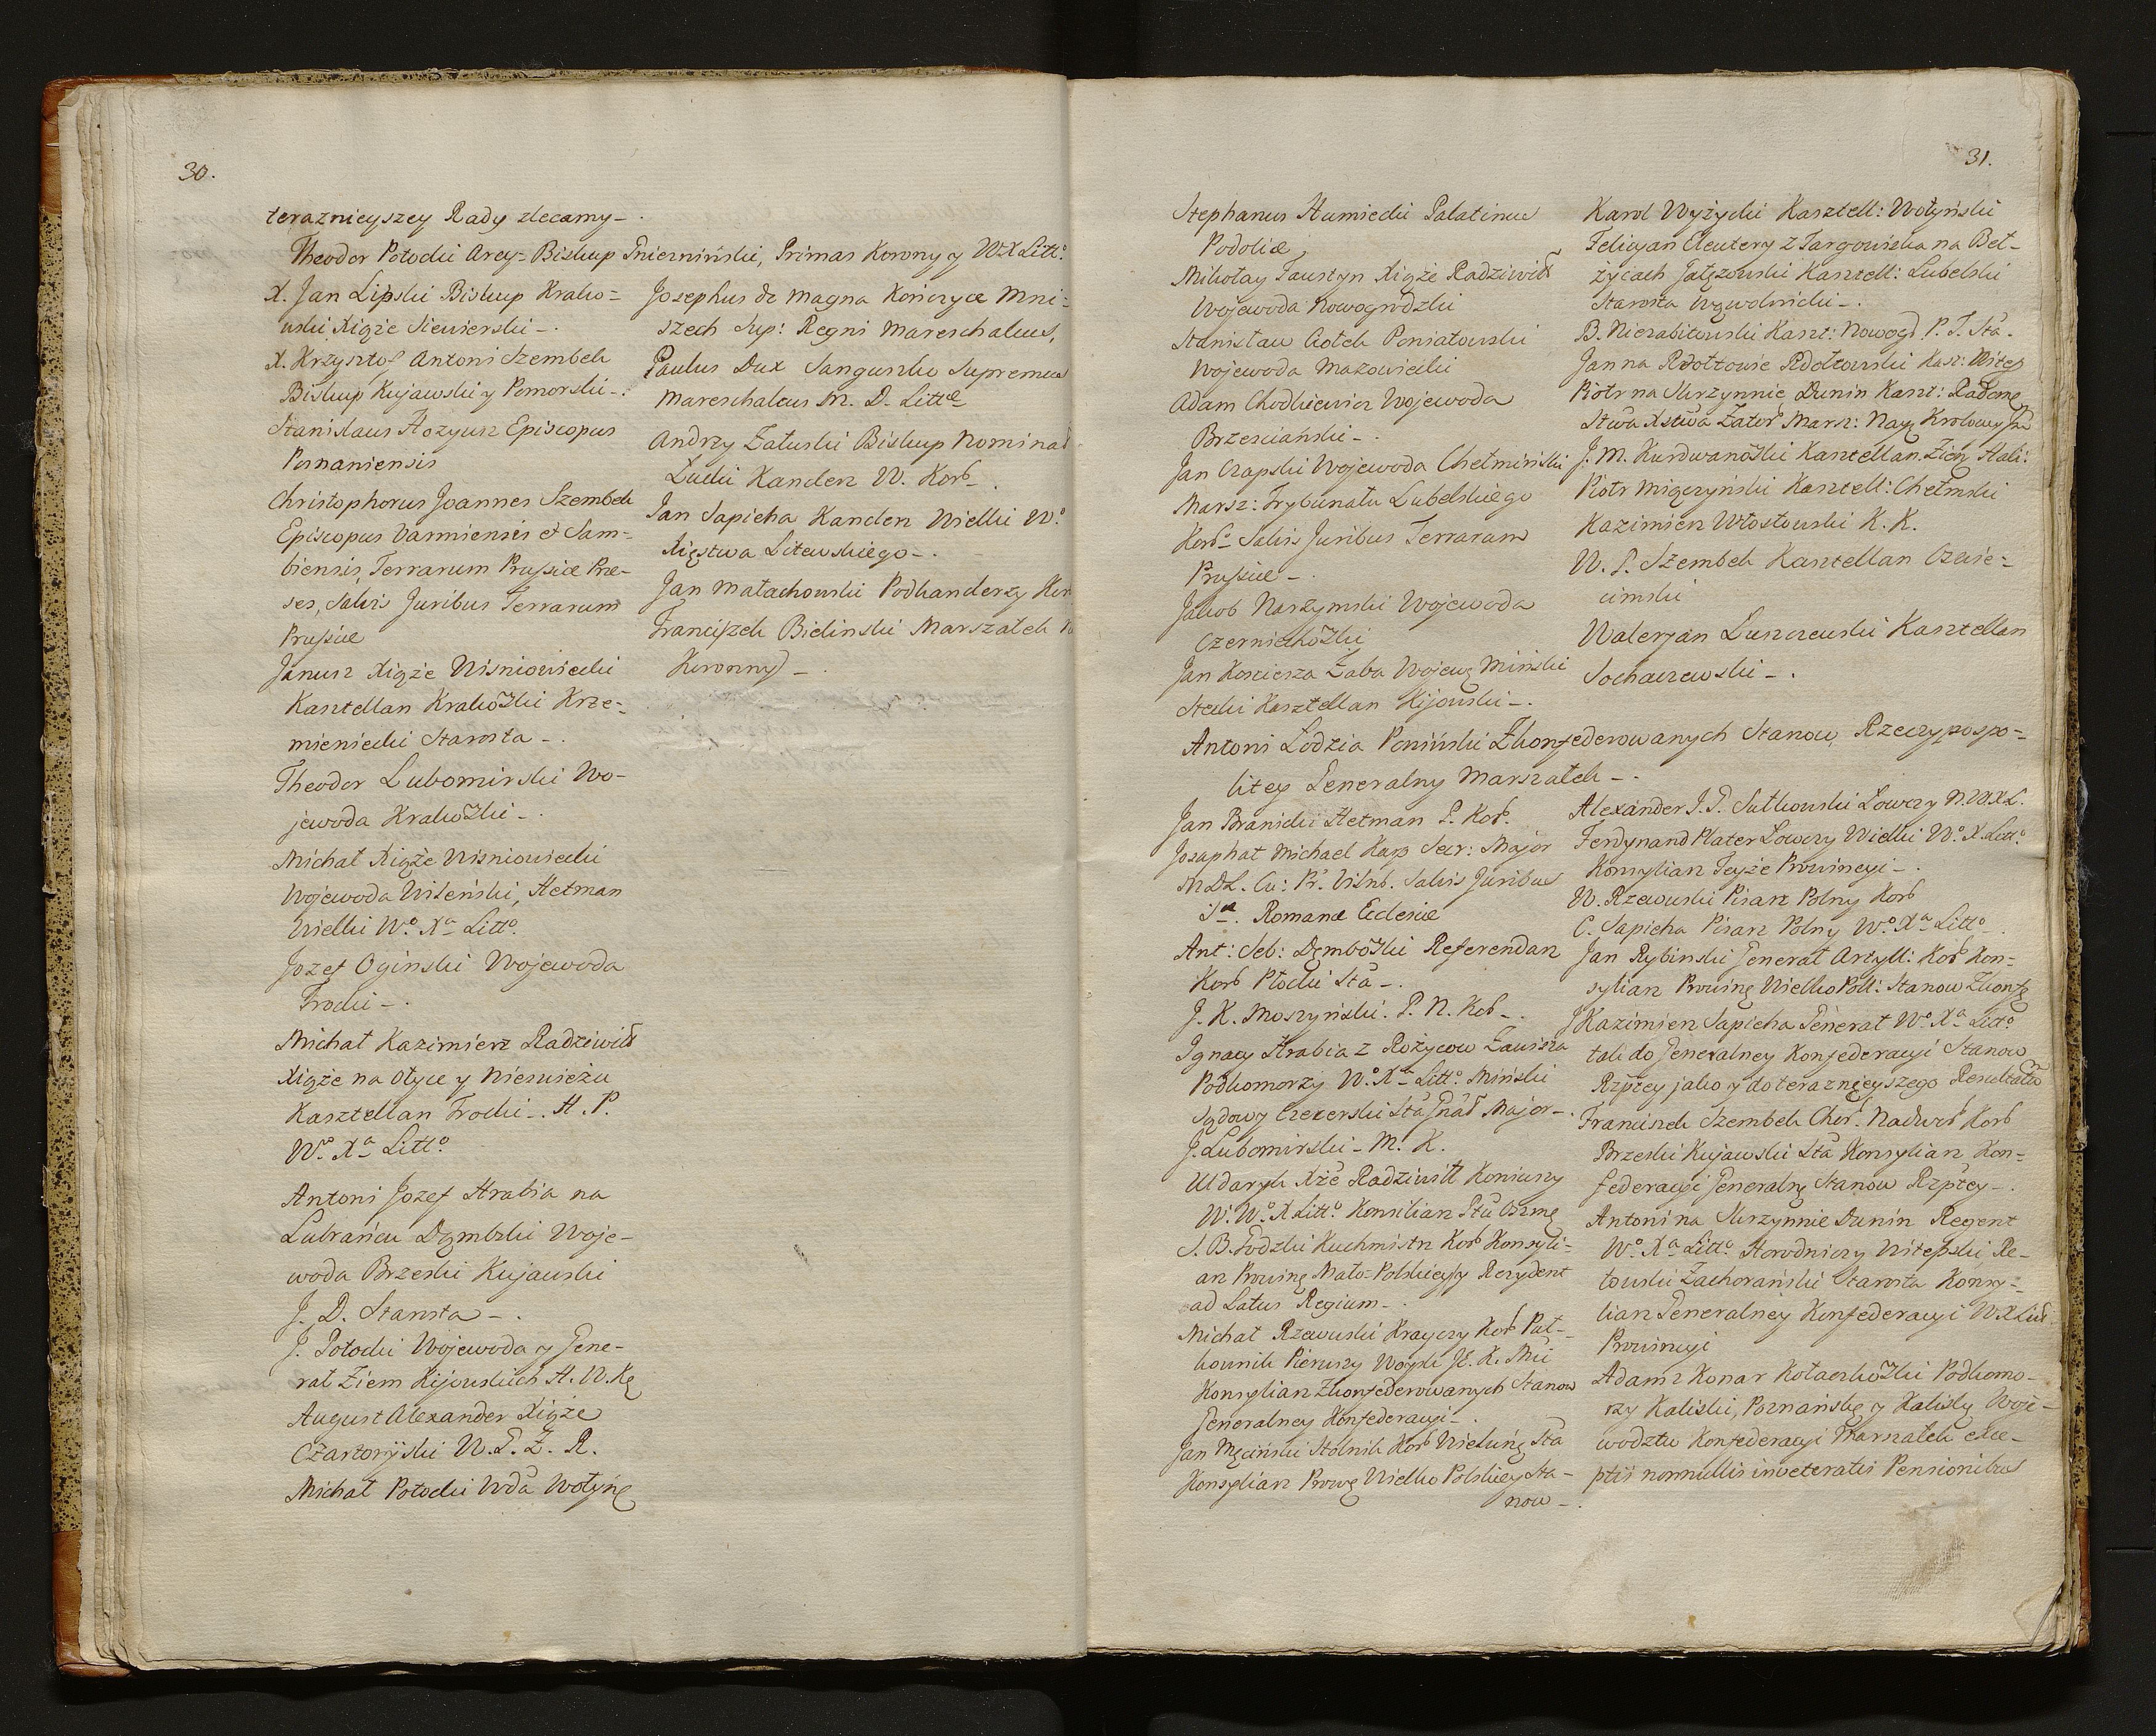 30.
teraznieyszey Rady zlecamy_.
Theodor Potocki Arcy=Biskup Gniezninski, Primas Korony y WXLitt:
X. Jan Lipski Biskup Krako=
wski Xiąże Siewierski_.
X. Krzysztof Antoni Szembek
Biskup Kujawski y Pomorski_.
Stanislaus Hozyusz Episcopus
Posnaniensis
Christophorus Joannes Szembek
Episcopus Varmiensis et Sam=
biensis, Terrarum Prussiæ Præ-
ses, salvis Juribus Terrarum
Prussiæ
Janusz Xiąże Wisniowiecki
Kasztellan Krakowski Krze=
mieniecki Starosta_.
Theodor Lubomirski Wo-
jewoda Krakowski_.
Michał Xiąże Wisniowiecki
Wojewoda Wileński, Hetman
Wielki Wo. Xa Litto.
Jozef Oginski Wojewoda
Trocki_.
Michał Kazimierz Radziwiłł
Xiąże na Ołyce y Nieswieżu
Kasztellan Trocki_. H. P.
Wo. Xa Litto.
Antoni Jozef Hrabia na
Lubrańcu Dąmbski Woje-
woda Brzeski Kujawski
J. D. Starosta_.
J. Potocki Wojewoda y Gene-
rał Ziem Kijowskich H. W. Ko
August Alexander Xiąże
Czartoryiski W. G. Z. R.
Michał Potocki Wda Wołynę
Josephus de Magna Kończyce Mni=
szech Sup: Regni Mareschalcus,
Paulus Dux Sanguszko Supremus
Mareschalcus M. D. Littæ
Andrzy Załuski Biskup Nominat
Łucki Kanclerz W. Kor_.
Jan Sapieha Kanclerz Wielki Wo.
Xięstwa Litewskiego_.
Jan Małachowski Podkanclerzy Kor
Franciszek Bielinski Marszałek
Koronny_.
31.
Stephanus Humiecki Palatinus
Podoliæ
Mikołay Faustyn Xiąże Radziwiłł
Wojewoda Nowogrodzki
Stanisław Ciołek Poniatowski
Wojewoda Mazowiecki
Adam Chodkiewicz Wojewoda
Brzesciański_.
Jan Czapski Wojewoda Chełmiński
Marsz: Trybunału Lubelskiego
Koro Salvis Juribus Terrarum
Prussiæ_.
Jakob Narzymski Wojewoda
Czerniechowski
Jan Kosciesza Zaba Wojewą Miński
Stecki Kasztellan Kijowski_.
Karol Wyżycki Kasztell: Wołyński
Felicyan Eleutery z Targowiska na Beł-
życach Gałęzowski Kasztell: Lubelski
Starosta Wąwolnicki_.
B. Niezabitowski Kaszt: Nowogd. P. T. Sta.
Jan na Rdołtowie Rdołtowski Kasz: Witep
Piotr na Skrzynnie Dunin Kaszt: Radomę
Stwa Xstwa Zator Marsz: Nayę Krolowey
J. M. Kurdwanowski Kasztellan Ziem Hali:
Piotr Miączyński Kasztell: Chełmski
Kazimierz Włostowski K. K.
W. P. Szembek Kasztellan Oswie=
cimski
Waleryan Luszczewski Kasztellan
Sochaczewski_.
Antoni Łodzia Poniński Zkonfederowanych Stanow Rzeczypospo=
litey Generalny Marszałek_.
Jan Branicki Hetman P. Kor.
Josaphat Michael Karp Secr: Major
MDL. Cu: Pr. Vilnb. Salvis Juribus
Sæ. Romanæ Ecclesiæ
Ant: Seb: Dęmbowski Referendarz
Kor Płocki Sta_.
J. K. Moszyński. P. N. Kor_.
Ignacy Hrabia z Rożycow Zawisza
Podkomorzy Wo. Xa Litto. Miński
Sądowy Czeczerski Sta Gnał Major_.
J. Lubomirski_ M. K.
Udalryk Xże Radziwiłł Koniuszy
W. Wo. X Litto. Konsiliarz Stu Oszmę
S. B. Godzki Kuchmistrz Kor Konsyli=
arz Prowinę Mało=Polskieyssy Rezydent
ad Latus Regium_.
Michał Rzewuski Krayczy Kor Puł-
kownik Pierwszy Woysk JE. K. Mci
Konsyliarz Zkonfederowanych Stanow
Generalney Konfederacyi_.
Jan Męciński Stolnik Kor Wieluńę Sta
Konsyliarz Prowę Wielko Polskiey Sta-
now_.
Alexander J. P. Sułkowski Łowczy N. W. X. L.
Ferdynand Plater Łowczy Wielki Wo. X. Litto.
Konsyliarz Teyże Prowincyi_.
W. Rzewuski Pisarz Polny Kor
C. Sapieha Pisarz Polny Wo. Xa Litto_.
Jan Rybinski Generał Artyll: Kor Kon=
syliarz Prowinę Wielko Poll: Stanow Zkonfę
J Kazimierz Sapieha Generał Wo. Xa Litto
tak do Generalney Konfederacyi Stanow
Rzptey jako y do teraznieyszego Resultatu
Franciszek Szembek Chor. Nadwor Kor
Brzeski Kujawski Sta Konsyliarz Kon=
federacyi Generalnę Stanow Rzptey_.
Antoni na Skrzynnie Dunin Regent
Wo. Xa Litto. Horodniczy Witepski Re-
towski Zachorański Starosta Konsy=
liarz Generalney Konfederacyi WXLitt
Prowincyi
Adam z Konar Kołaczkowski Podkomo-
rzy Kaliski, Poznańskę y Kalisky Woje-
wodztw Konfederacyi Marszałek exce-
ptis nonnullis inveteratis Pensionibus